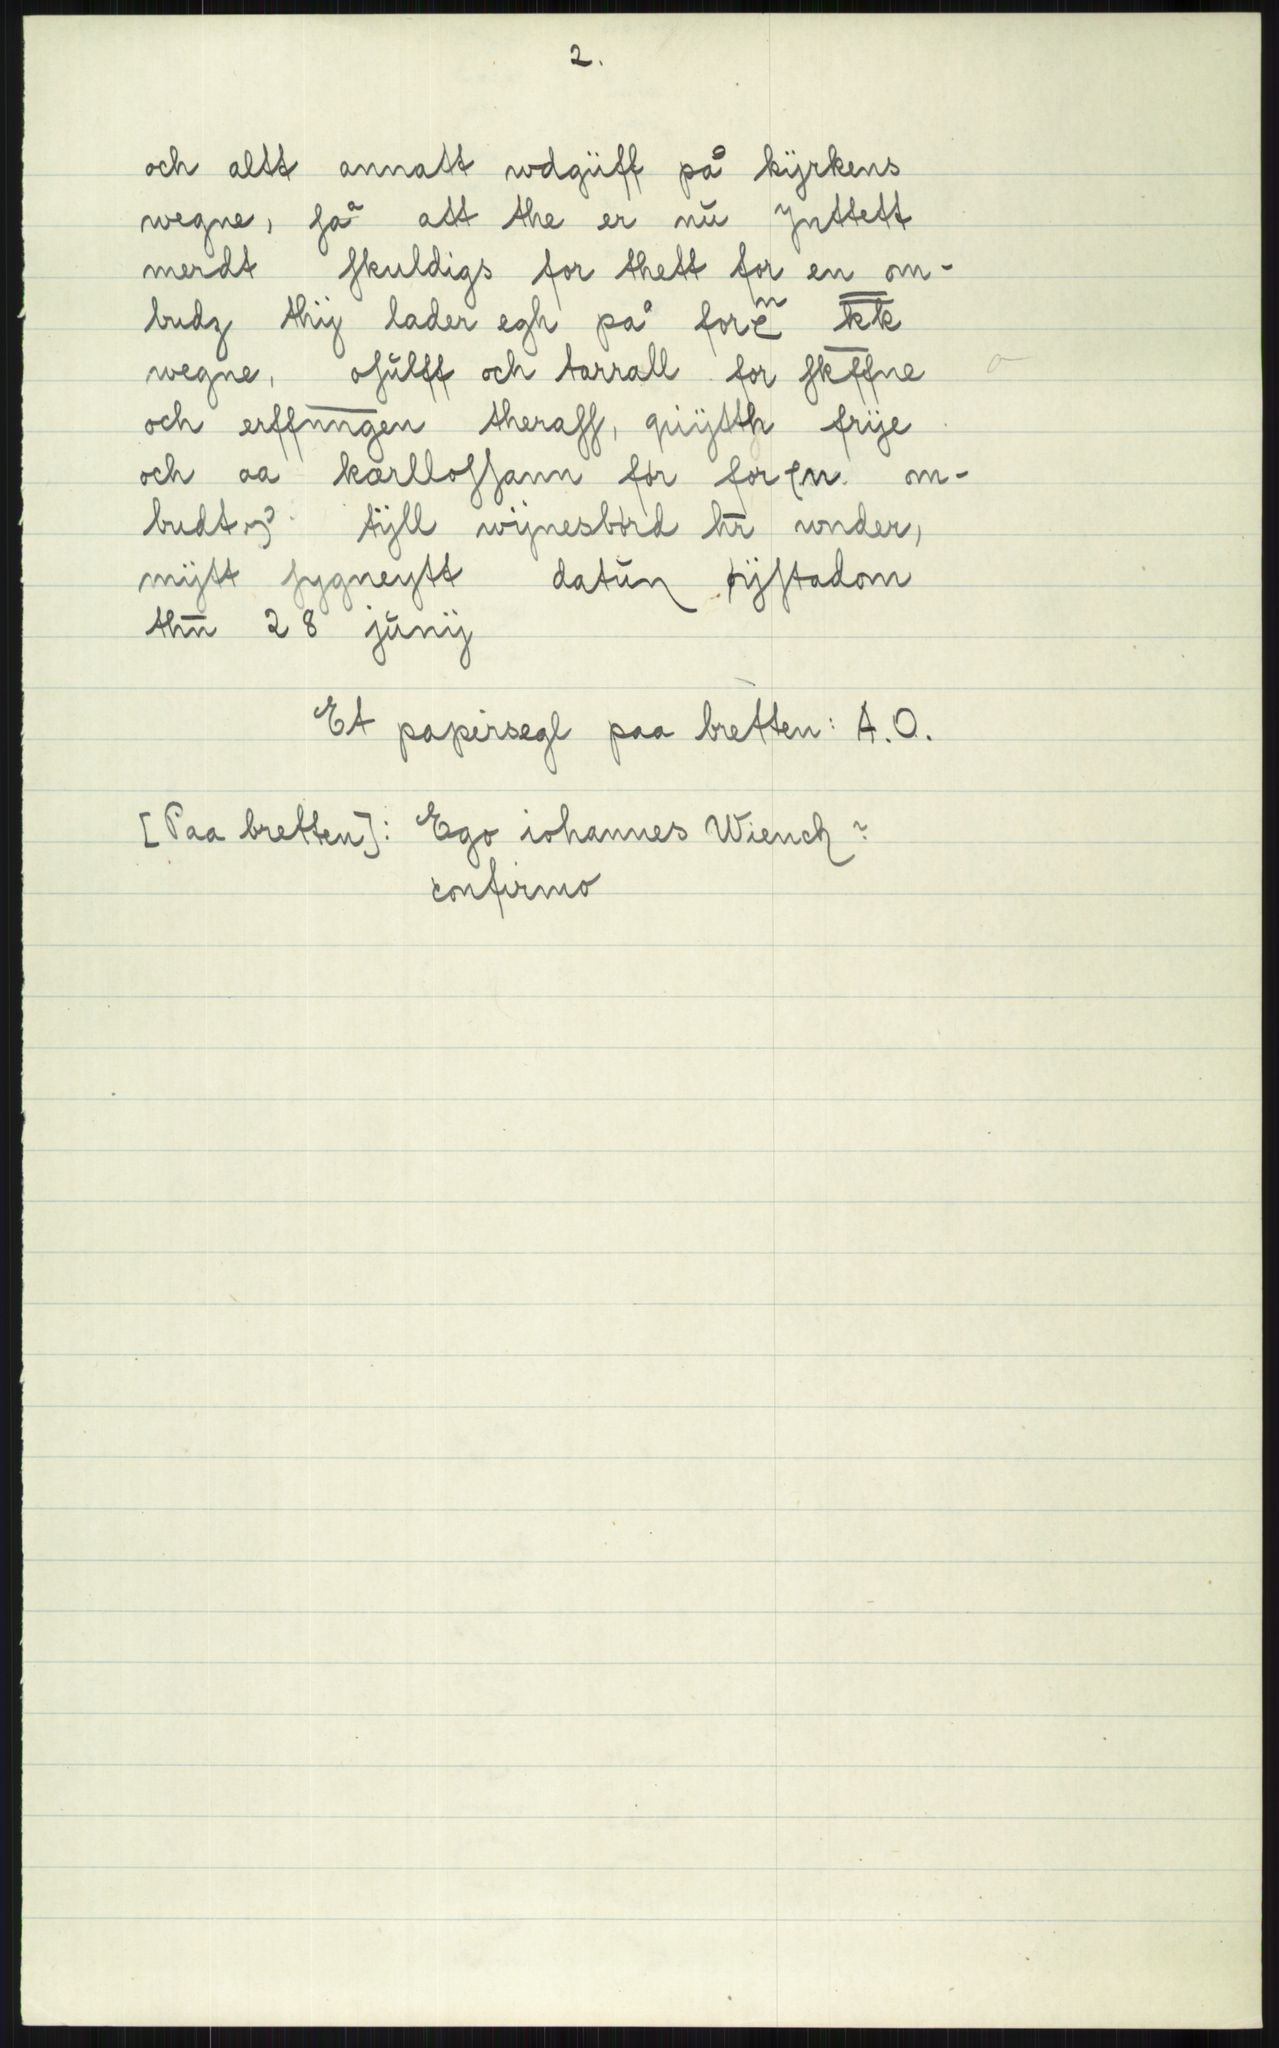 2.
och altt annatt wdgüff på kÿrkens
wegne, ſaͣ att the er nŭ ynttett
merdt ſkuldigs for thett for en om-
budz thÿ lader egh paͦ foreͫ k̅k̅
wegne, oſŭlff och tarrall for ſkf̅fne
och erffn̅ngen theraff, quÿtth frÿe
och aa karlloſſann for foren om-
budt tÿll wÿnesbŏrd hr̅ wnder,
mÿtt ſygneytt datŭm ÿſtadom
thn̅ 28 jŭnÿ
Et papirsegl paa bretten: A.O.
[Paa bretten]: Ego iohannes Wiench?
confirmo